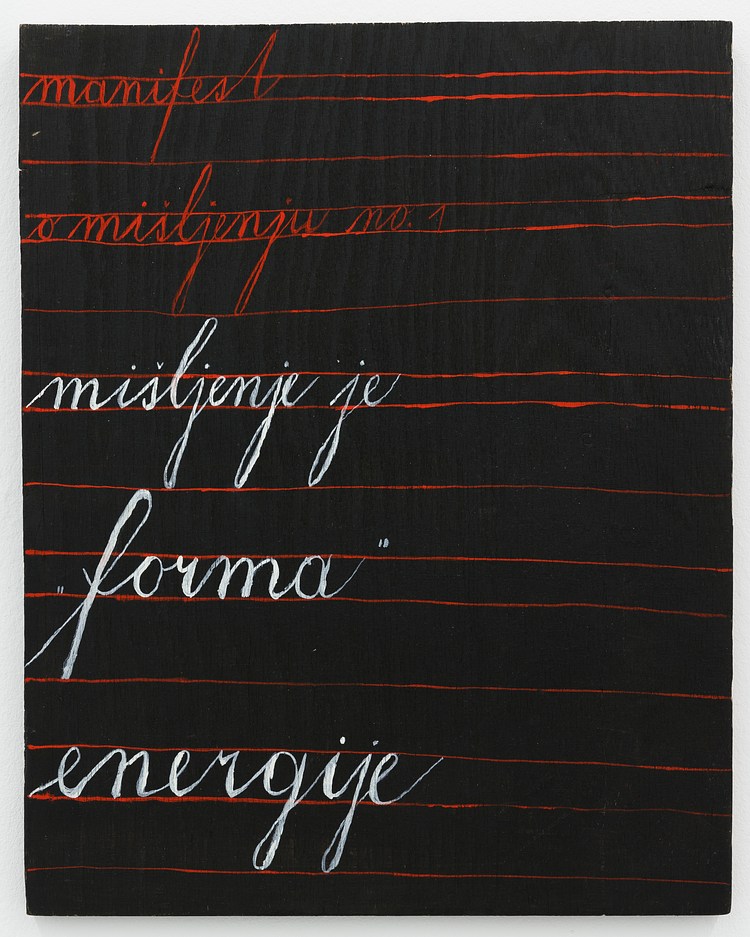 manifest
o mišljenju no. 1
mišljenje je
„forma"
energije